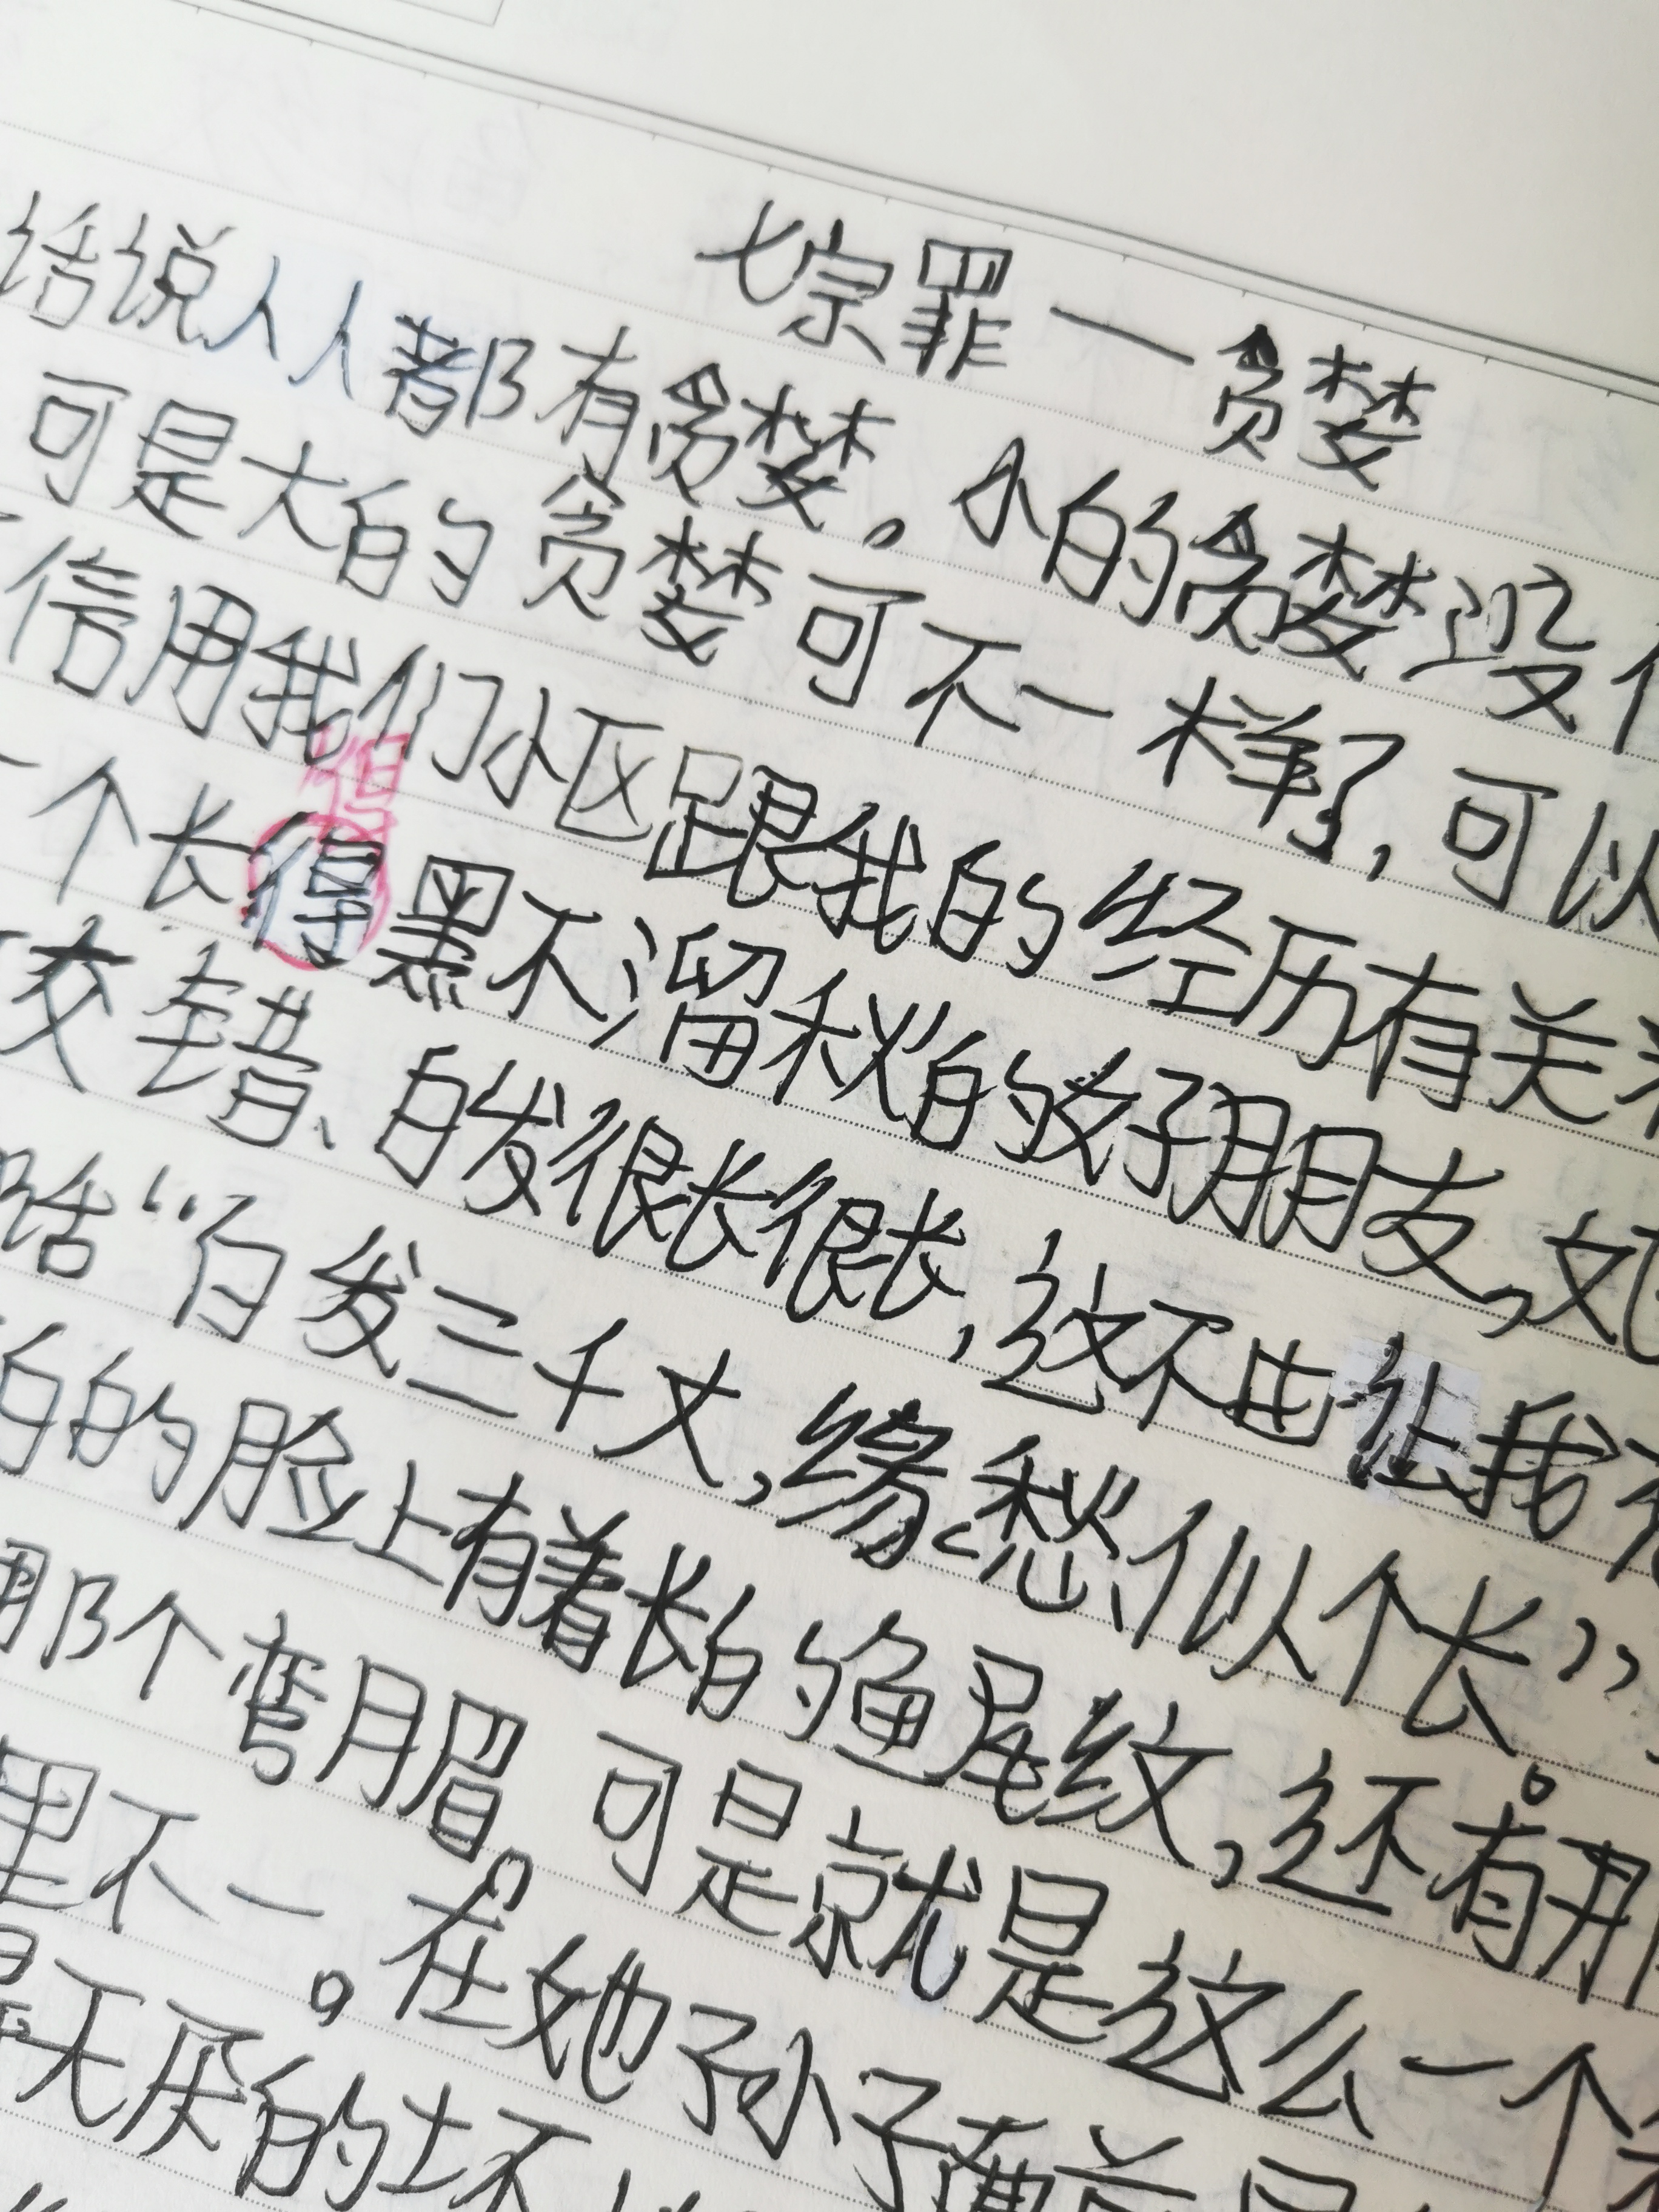 七宗罪一贪婪
话说人人都有贪婪。小的贪婪没
可是大的贪婪可不一样了,可以
信用我们小区跟我的经历有关
得
一个长得黑不溜秋的好朋友,
交错、白发很长很长,这不由让我
“白发三千丈,缘愁似个长”。
的脸上有着长白的鱼尾纹,还有那
那个弯月眉。可是就是这么一个
里不一。在她孙子
的坏